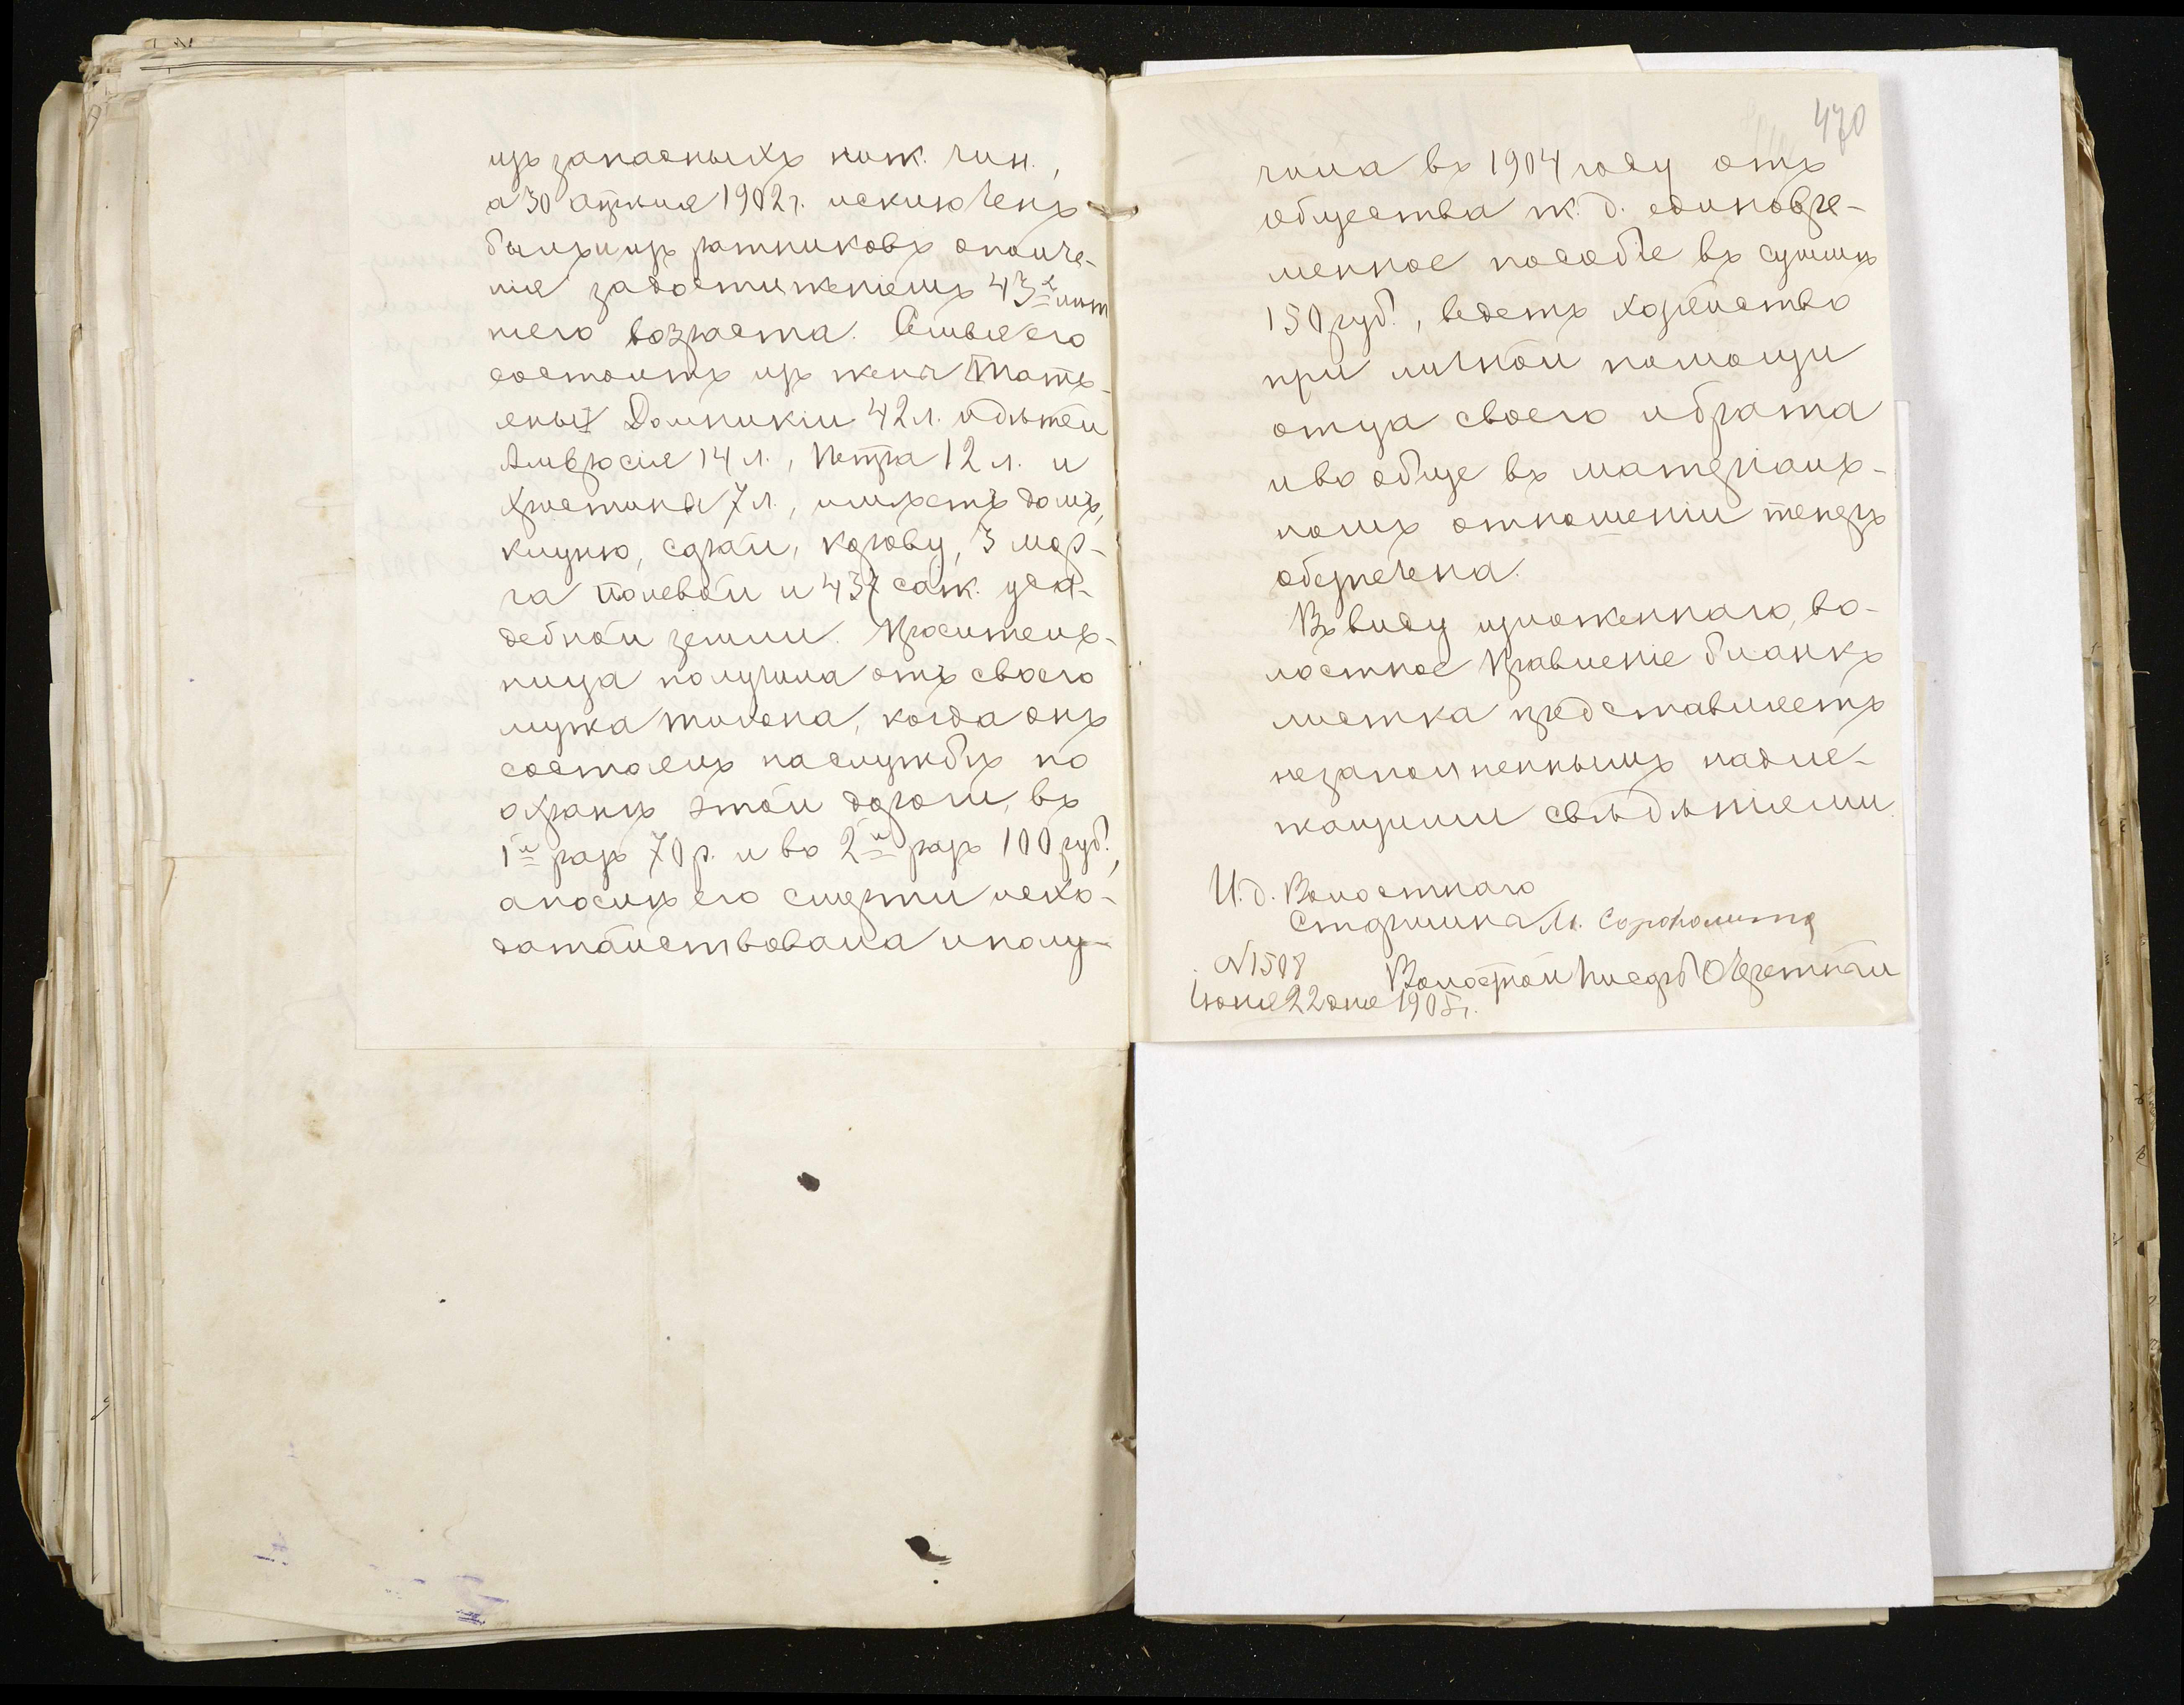 изъ запасныхъ ниж. чин.,
а 30 апрѣля 1902 г. исключенъ
былъ и изъ ратниковъ ополче-
нія за достиженіемъ 43х лѣт
няго возраста. Семья его
состоитъ изъ жены Татъ-
яны Домникіи 42 л. и дѣтей
Амвросія 14 л., Петра 12 л. и
Христины 7 л., имѣетъ домъ,
клуню, сарай, корову, 3 мор-
га полевой и 437 саж. уса-
дебной земли. Проситель-
ница получила отъ своего
мужа жилена, когда онъ
состоялъ на службѣ по
охранѣ этой дороги, въ
1й разъ 70 р. и во 2й разъ 100 руб.,
а послѣ его смерти исхо-
датайствовала и полу-
470
чила въ 1904 году отъ
общества ж. д. единовре-
менное пособіе въ суммѣ
150 руб., ведетъ хозяйство
при личной помощи
отца своего и брата
и во обще въ матеріаль-
номъ отношеніи теперь
обезпечена.
Въ виду изложеннаго, во-
лостное Правленіе бланкъ
листка представляетъ
незаполненнымъ надле-
жащими свѣдѣніями.
И. д. Волостнаго
Старшина М.
№ 1508
Волостной Писарь
Іюня 22 дня 1905 г.